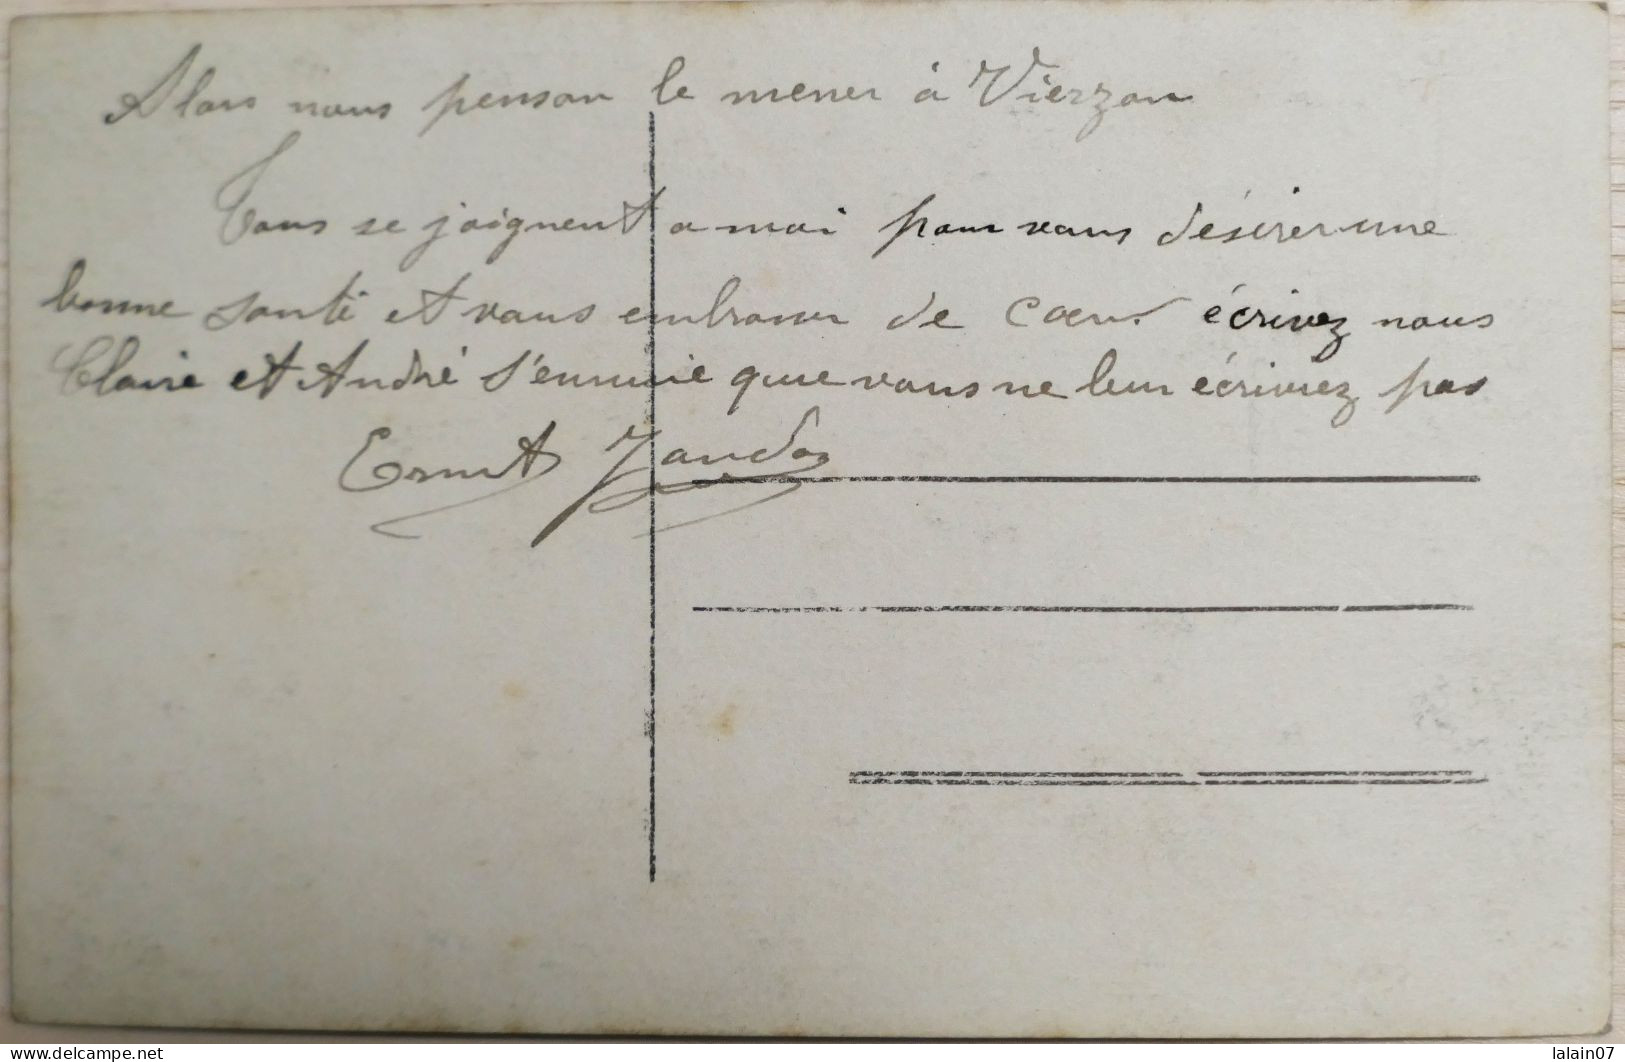 Alors nous penson le mener à Vierzon
Tous se joignent a moi pour vous désirer une
bonne santé et vous embrasser de Coeur écrivez nous
Claire et André s'ennuie que vous ne leur écrivez pas
Ernest
www.delcampe.net
lalain07